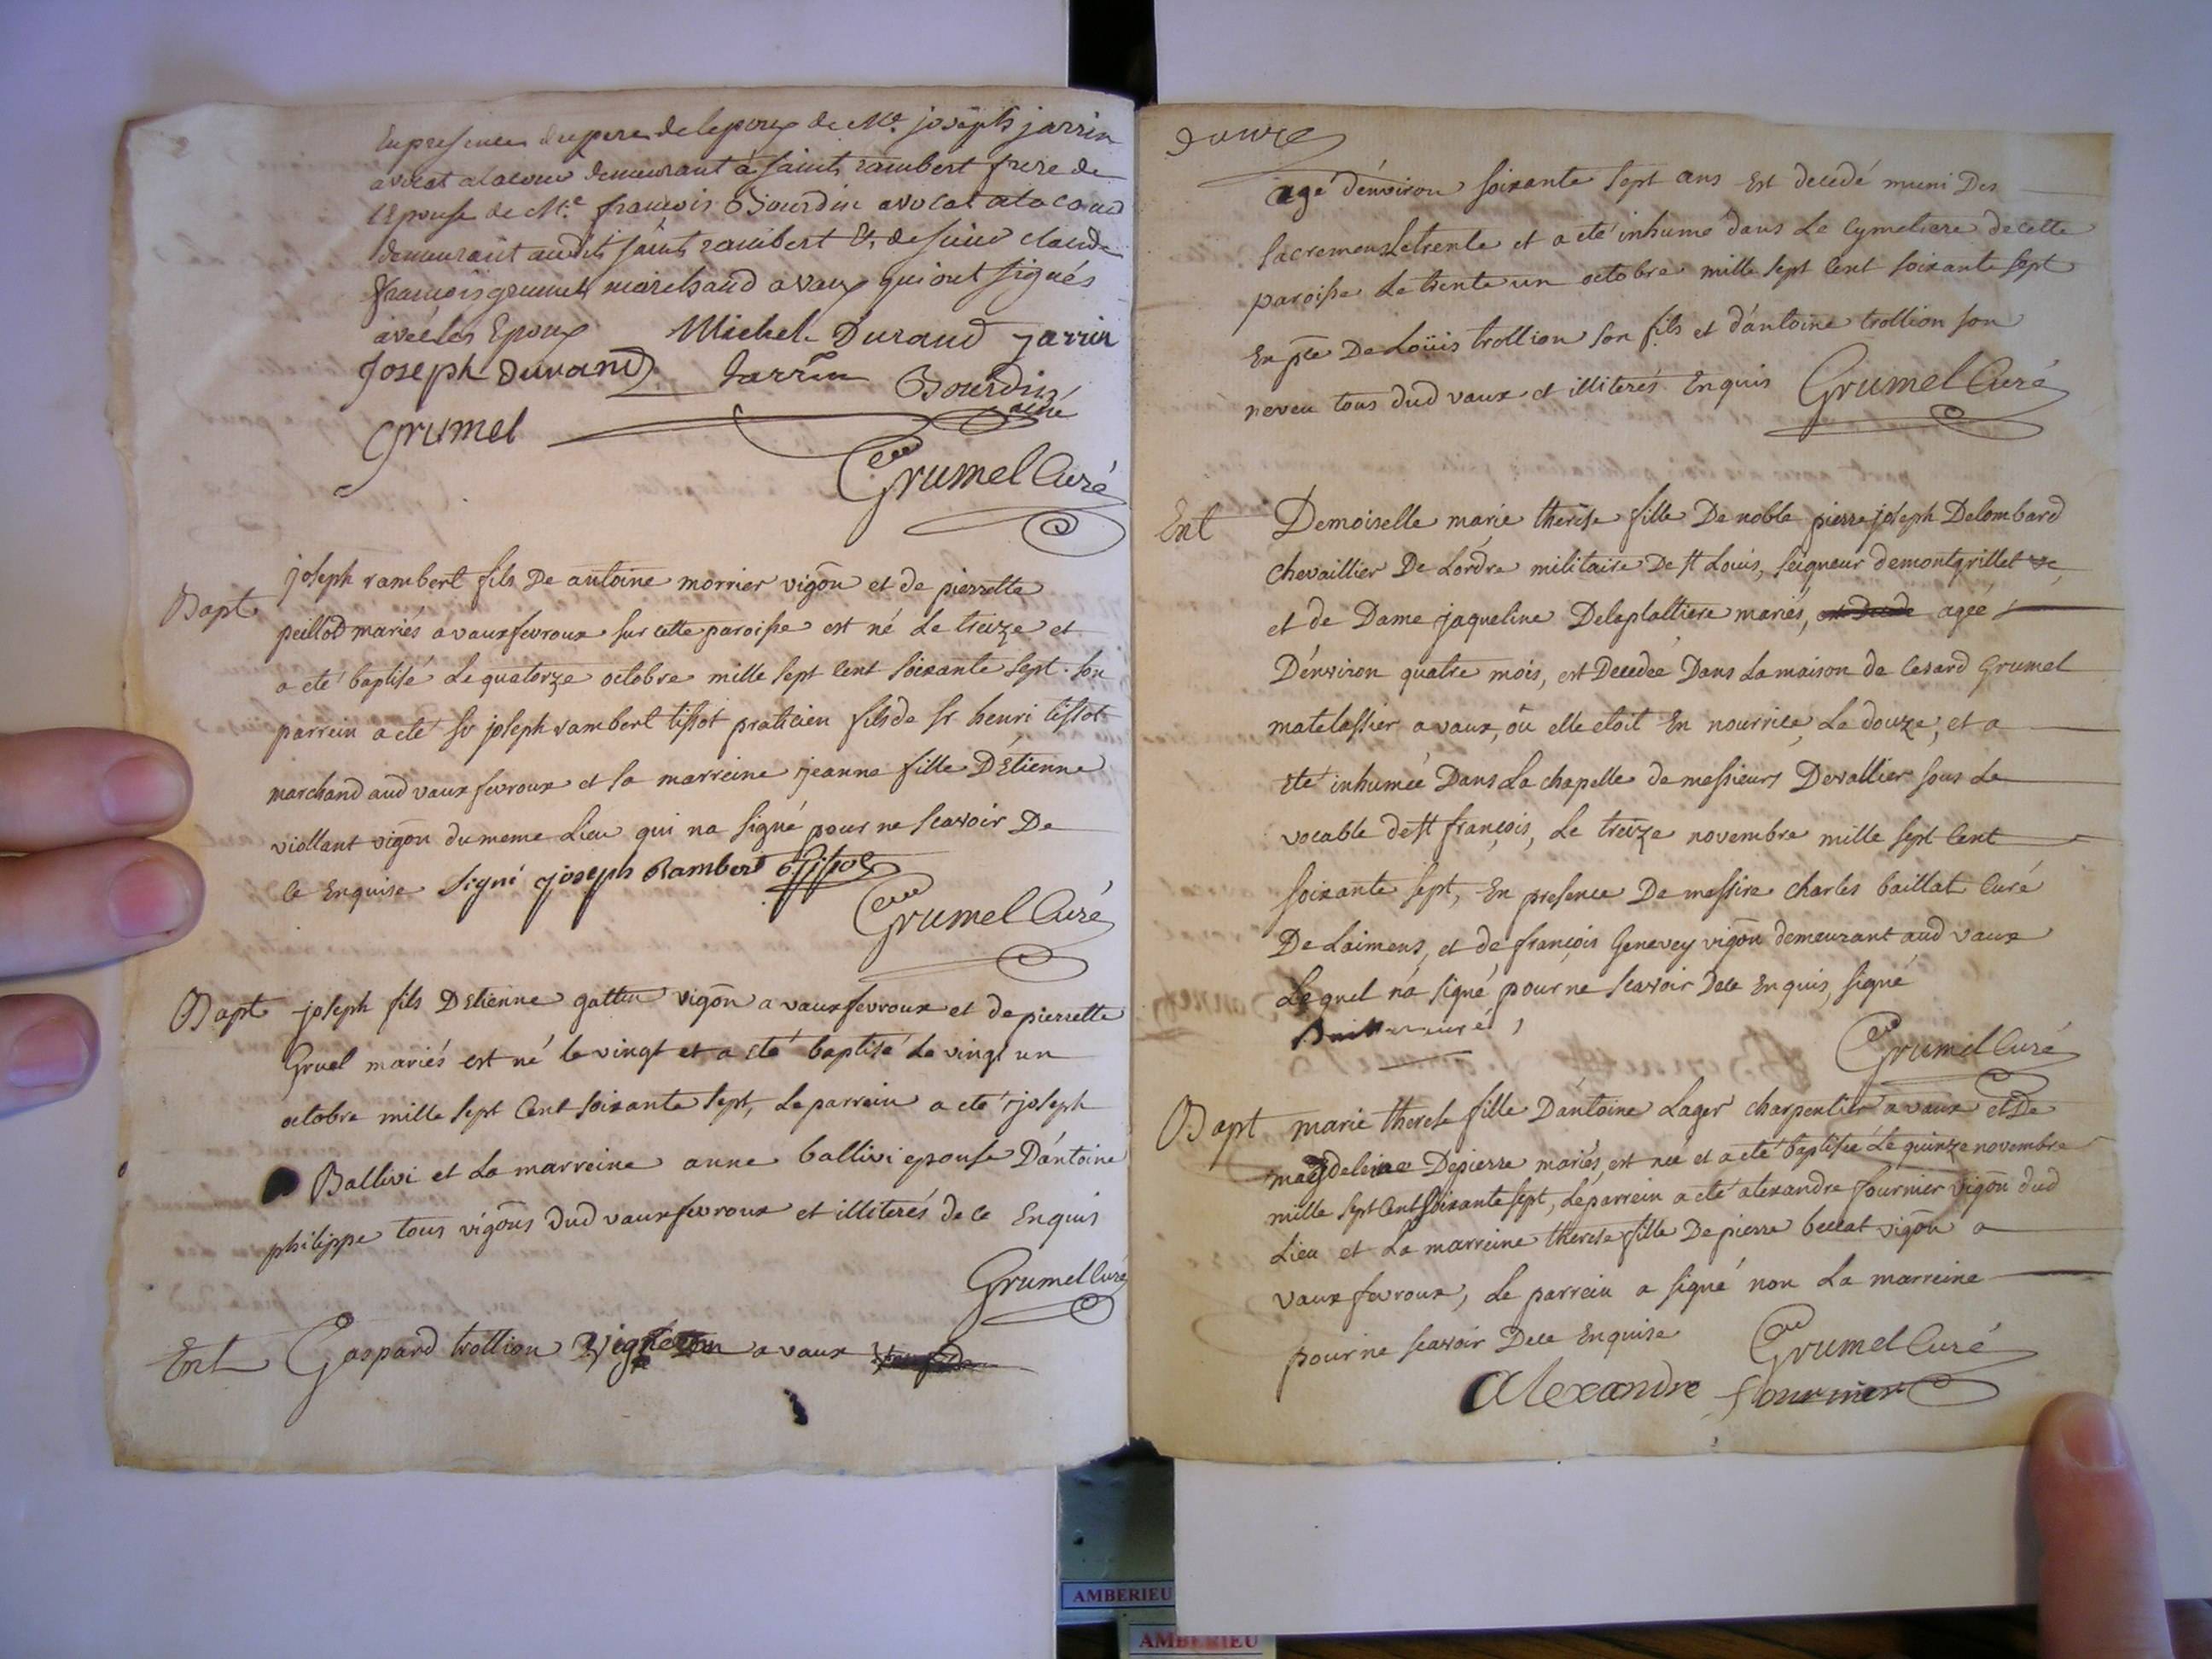 En presence du pere de lepoux de Me. joseph jarrin
avocat alacour demeurant à saint rambert frere de
lepouse de Me. francois Bourdin avocat ala cour
demeurant audit saint rambert & de sieur claude
françois grumel marchand a vaux qui ont signés
avec les Epoux Michel Durand jarrin
Joseph durand Jarrin Bourdin
ainé
Grumel
Grumel Curé
Bapt joseph rambert fils De antoine morrier vigōn et de pierrette
peillod mariés a vauxfevroux sur cette paroisse est né Le treize et
a eté baptisé Le quatorze octobre mille sept Cent soixante sept. son
parrein a eté sr joseph rambert tissot praticien fils de sr henri tissot
marchand aud vaux fevroux et sa marreine jeanne fille D'Etienne
viollant vigōn du meme Lieu qui na signé pour ne scavoir De
ce Enquise signé joseph Rambert Tissot
Grumel Curé
Bapt joseph fils DEtienne gattin vigōn a vauxfevroux et de pierrette
Gruel mariés est né le vingt et a eté baptisé Le vingt un
octobre mille sept Cent soixante sept, Le parrein a eté joseph
Ballivi et La marreine anne ballivi epouse D'antoine
philippe tous vigōns Dud vauxfevroux et illiterés de ce Enquis
Grumel Curé
Ent Gaspard trollion Vigneron a vaux
douze
agé d'environ soixante sept ans est decedé muni Des
sacremens Le trente et a eté inhumé dans Le Cymetiere de cette
paroisse Le trente un octobre mille sept Cent soixante sept
En pce De Loüis trollion son fils et d'antoine trollion son
neveu tous dud vaux et illiterés Enquis Grumel Curé
Ent Demoiselle marie therese fille De noble pierre joseph Delombard
chevaillier De Lordre militaire De st Louis, seigneur demontgrillet
et de Dame jaqueline Delaplattiere mariés, agée
D'environ quatre mois, est Decedée Dans La maison de Cesard Grumel
matelassier a vaux, ôu elle etoit En nourrice, Le douze, et a
eté inhumée Dans La chapelle de messieurs Devallier sous Le
vocable de st françois, Le treize novembre mille sept Cent
soixante sept, En presence De messire Charles baillat Curé
De Laimens, et de françois Genevey vigōn demeurant aud vaux
Lequel n'a signé pour ne scavoir Dece Enquis, signé
curé,
Grumel Curé
Bapt marie therese fille D'antoine Lager charpentier a vaux et De
magdeleine Depierre mariés, est née et a eté baptisée Le quinze novembre
mille sept Cent soixante sept, Le parrein a eté alexandre fournier vigōn dud
Lieu et La marreine therese fille De pierre beccat vigōn a
vaux fevroux, Le parrein a signé non La marreine
pour ne scavoir Dece Enquise Grumel Curé
Alexandre fournier
AMBERIEU
AMBERIEU